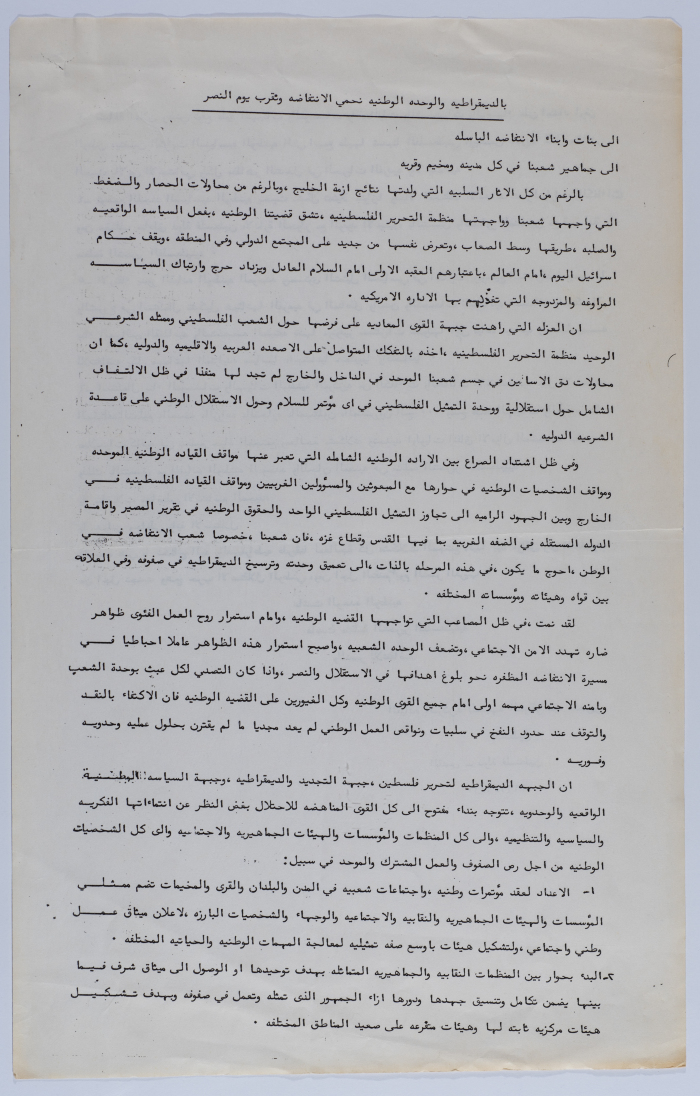 بالديمقراطيه والوحده الوطنيه نحمي الانتفاضه ونقرب يوم النصر
الى بنات وابناء الانتفاضه الباسله
الى جماهير شعبنا في كل مدينه ومخيم وقريه
بالرغم من كل الاثار السلبيه التي ولدتها نتائج ازمة الخليج ،وبالرغم من محاولات الحصار والضغط
التي واجهها شعبنا وواجهتها منظمة التحرير الفلسطينيه ،تشق قضيتنا الوطنيه ،بفعل السياسه الواقعيه
والصلبه ،طريقها وسط الصعاب ،وتعرض نفسها من جديد على المجتمع الدولي وفي المنطقه ،ويقف حكام
اسرائيل اليوم ،امام العالم ،باعتبارهم العقبه الاولى امام السلام العادل ويزداد حرج وارتباك السياسه
المراوغه والمزدوجه التي تغذيهم بها الاداره الامريكيه ٠
ان العزله التي راهنت جبهة القوى المعاديه على فرضها حول الشعب الفلسطيني وممثله الشرعي
الوحيد منظمة التحرير الفلسطينيه ،اخذه بالتفكك المتواصل على الاصعده العربيه والاقليميه والدوليه ،كما ان
محاولات دق الاسافين في جسم شعبنا الموحد في الداخل والخارج لم تجد لها منفذا في ظل الالتفاف
الشامل حول استقلالية ووحدة التمثيل الفلسطيني في اى مؤتمر للسلام وحول الاستقلال الوطني على قاعدة
الشرعيه الدوليه ٠
وفي ظل اشتداد الصراع بين الاراده الوطنيه الشامله التي تعبر عنها مواقف القياده الوطنيه الموحده
ومواقف الشخصيات الوطنيه في حوارها مع المبعوثين والمسؤولين الغربيين ومواقف القياده الفلسطينيه في
الخارج وبين الجهود الراميه الى تجاوز التمثيل الفلسطيني الواحد والحقوق الوطنيه في تقرير المصير واقامة
الدوله المستقله في الضفه الغربيه بما فيها القدس وقطاع غزه ،فان شعبنا ،خصوصا شعب الانتفاضه في
الوطن ،احوج ما يكون ،في هذه المرحله بالذات ،الى تعميق وحدته وترسيخ الديمقراطيه في صفوفه وفي العلاقه
بين قواه وهيئاته ومؤسساته المختلفه ٠
لقد نمت ،في ظل المصاعب التي تواجهها القضيه الوطنيه ،وامام استمرار روح العمل الفئوى ظواهر
ضاره تهدد الامن الاجتماعي ،وتضعف الوحده الشعبيه ،واصبح استمرار هذه الظواهر عاملا احباطيا في
مسيرة الانتفاضه المظفره نحو بلوغ اهدافها في الاستقلال والنصر ،واذا كان التصدي لكل عبث بوحدة الشعب
وبامنه الاجتماعي مهمه اولى امام جميع القوى الوطنيه وكل الغيورين على القضيه الوطنيه فان الاكتفاء بالنقد
والتوقف عند حدود النفخ في سلبيات ونواقص العمل الوطني لم يعد مجديا ما لم يقترن بحلول عمليه وحدويه
وفوريه ٠
ان الجبهه الديمقراطيه لتحرير فلسطين ،جبهة التجديد والديمقراطيه ،وجبهة السياسه الوطنية
الواقعيه والوحدويه ،تتوجه بنداء مفتوح الى كل القوى المناهضه للاحتلال بغض النظر عن انتماءاتها الفكريه
والسياسيه والتنظيميه ،والى كل المنظمات والمؤسسات والهيئات الجماهيريه والاجتماعيه والى كل الشخصيات
الوطنيه من اجل رص الصفوف والعمل المشترك والموحد في سبيل:
١- الاعداد لعقد مؤتمرات وطنيه ،واجتماعات شعبيه في المدن والبلدان والقرى والمخيمات تضم ممثلي
المؤسسات والهيئات الجماهيريه والنقابيه والاجتماعيه والوجهاء والشخصيات البارزه ،لاعلان ميثاق عمل
وطني واجتماعي ،ولتشكيل هيئات باوسع صفه تمثيليه لمعالجة المهمات الوطنيه والحياتيه المختلفه ٠
٢-البدء بحوار بين المنظمات النقابيه والجماهيريه المتماثله بهدف توحيدها او الوصول الى ميثاق شرف فيما
بينها يضمن تكامل وتنسيق جهدها ودورها ازاء الجمهور الذى تمثله وتعمل في صفوفه وبهدف تشكيل
هيئات مركزيه ثابته لها وهيئات متفرعه على صعيد المناطق المختلفه ٠